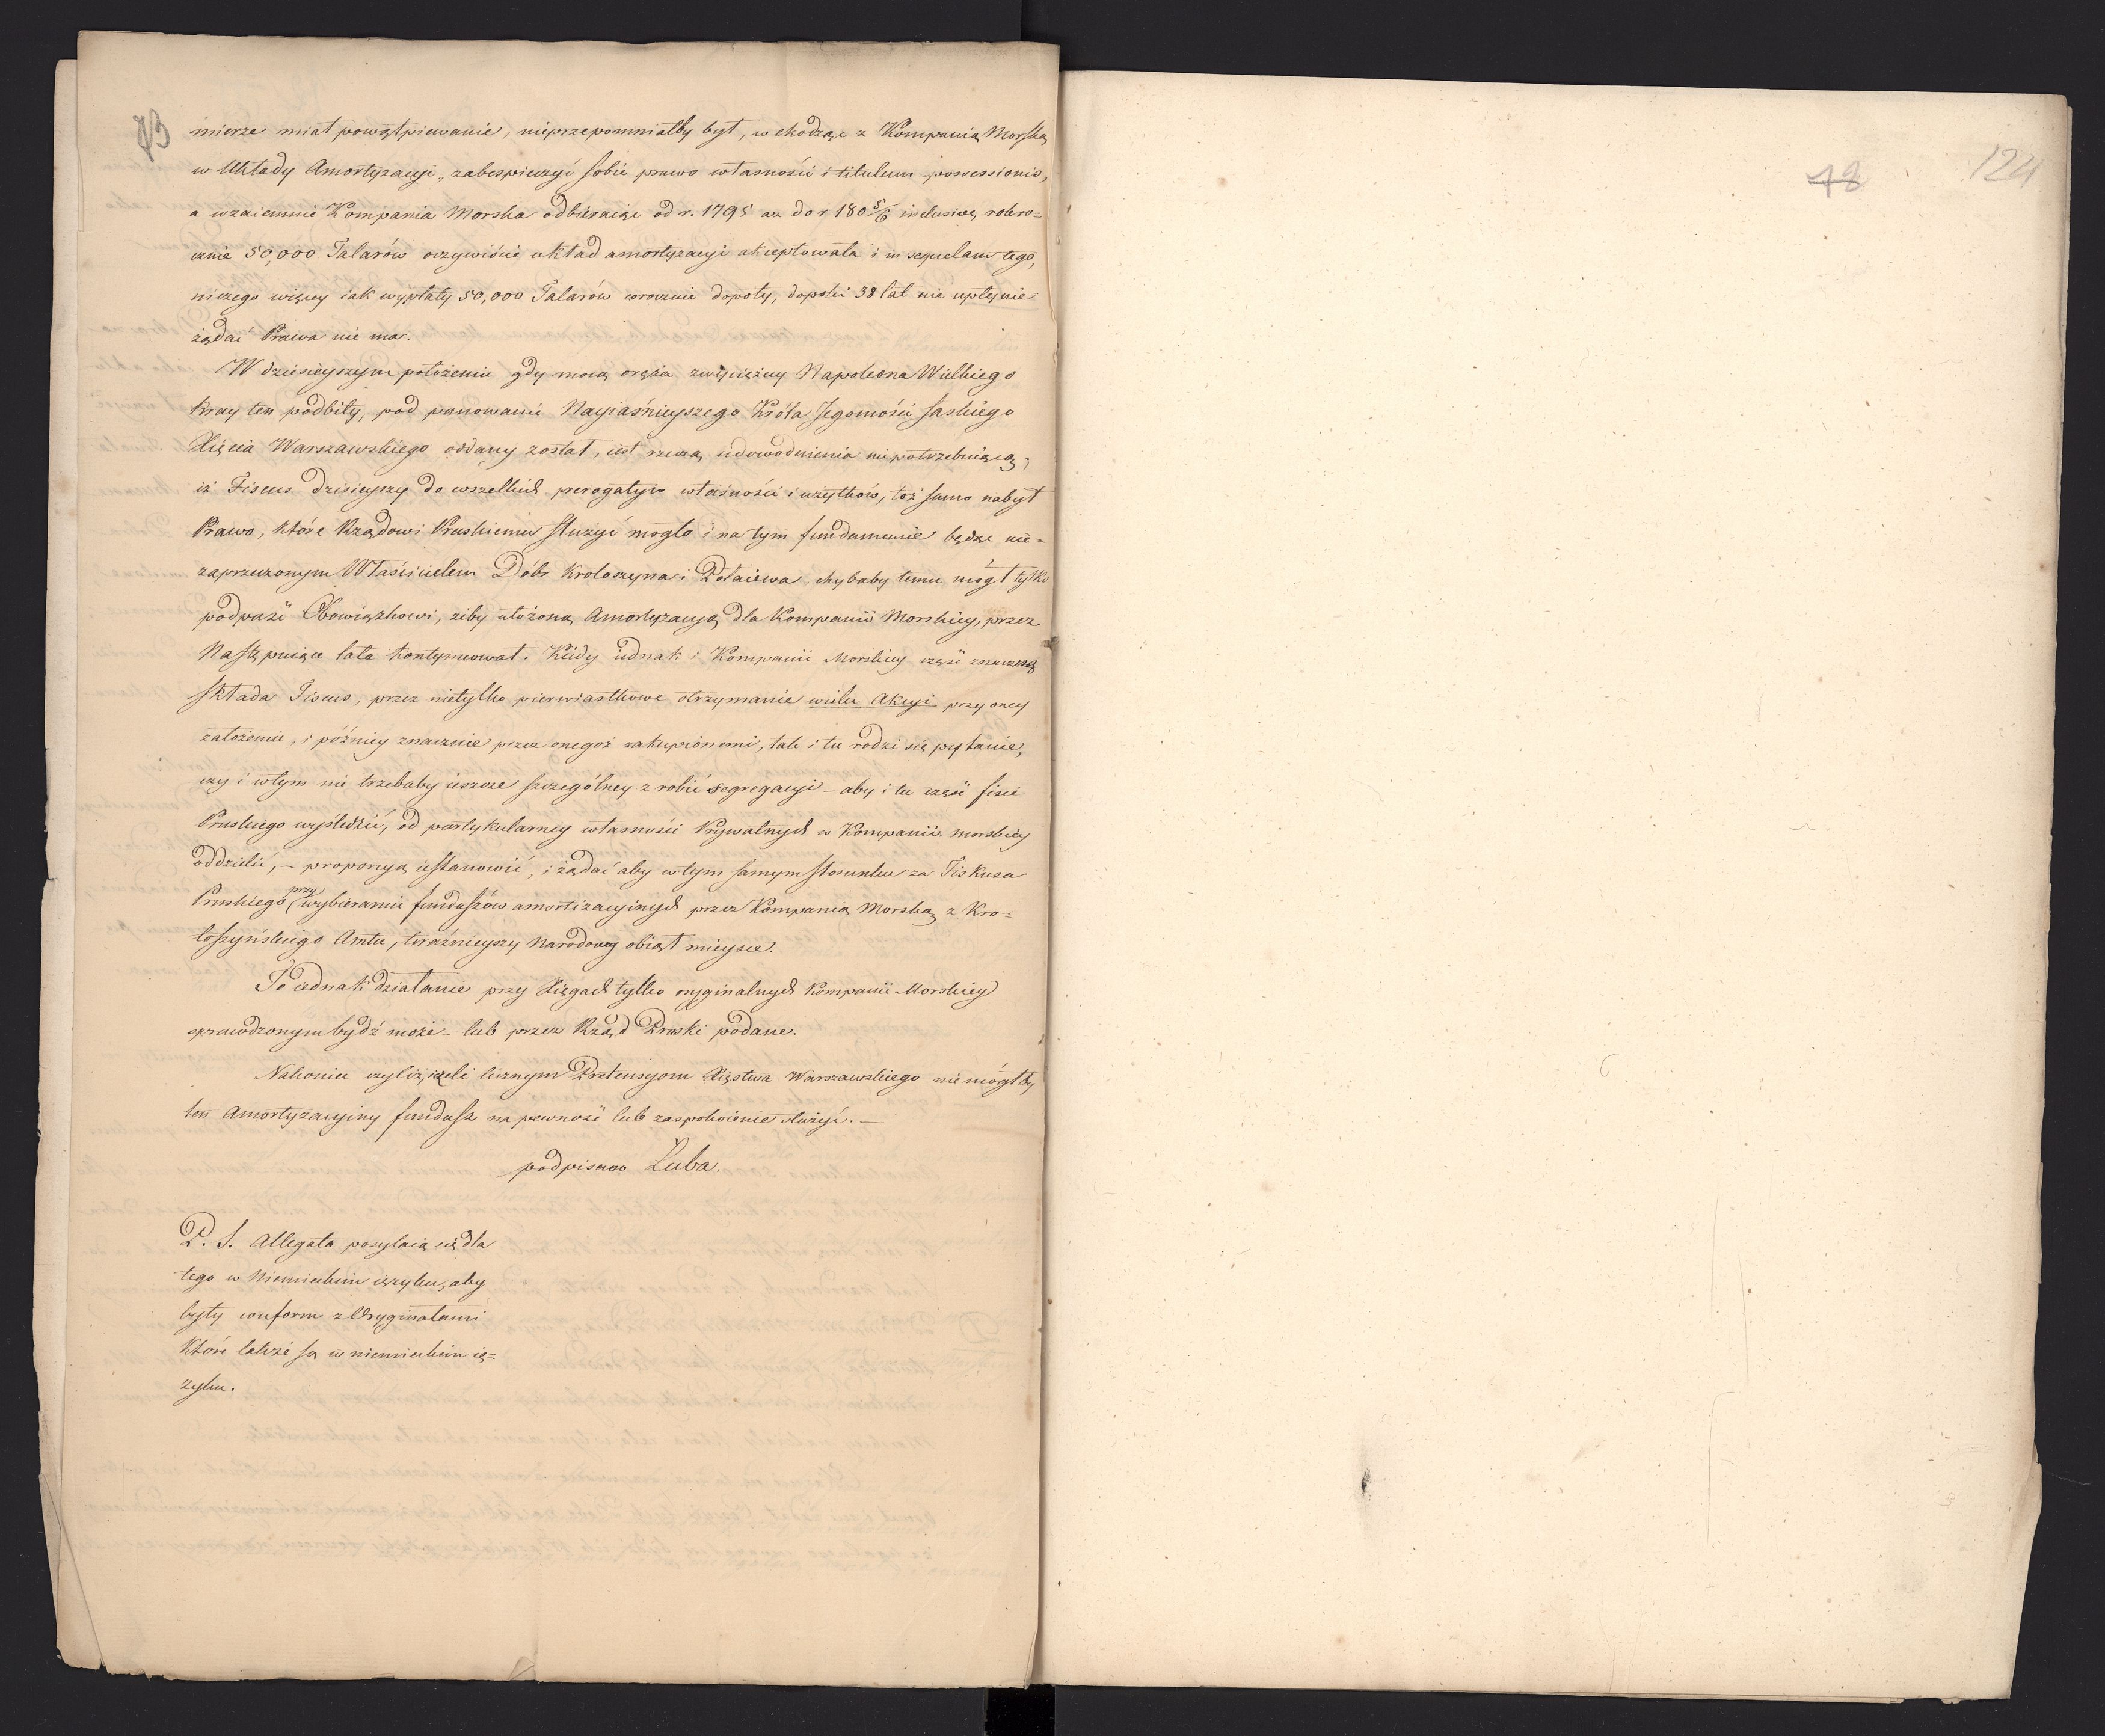 73
mierze miał powątpiewanie, nieprzepomniałby był, wchodząc z Kompanią Morską
w Układy Amortyzacyi, zabespieczyć sobie prawo własności i titulum possessionis,
a wzaiemnie Kompania Morska odbieraiąc od r. 1795 aż do r 180 5/6 inclusive, rokro=
cznie 50,000 Talarów oczywiście układ amortyzacyi akceptowała i in sequelam tego,
niczego więcey iak wypłaty 50,000 Talarów corocznie dopoty, dopóki 38 lat nie upłynie
żądać Prawa nie ma.
W dzisieyszym położeniu gdy mocą oręża zwycięzcy Napoleona Wielkiego
kray ten podbity, pod panowanie Nayiaśnieyszego Króla Jegomości Saskiego
Xięcia Warszawskiego oddany został, iest rzeczą udowodnienia niepotrzebuiącą,
iż Fiscus dzisieyszy do wszelkich prerogatyw własności i użytków, toż samo nabył
Prawo, które Rządowi Pruskiemu służyć mogło i na tym fundamencie będąc nie=
zaprzeczonym Właścicielem Dóbr Krotoszyna i Połaiewa, chybaby temu mógł tylko
podpaść Obowiązkowi, żeby ułożoną Amortyzacyą dla Kompanii Morskiey, przez
Następuiące lata kontynuował. Kiedy iednak i Kompanii Morskiey część znaczną
składa Fiscus, przez nietylko pierwiastkowe otrzymanie wielu Akcyi przy oney
założeniu, i późniey znacznie przez onegoż zakupionemi, tak i tu rodzi się pytanie,
czy i w tym nie trzebaby ieszcze szczególney zrobić segregacyi – aby i tu część fisci
Pruskiego wyśledzić, od partykularney własności Prywatnych w Kompanii morskiey
oddzielić, – proporcyą ustanowić, i żądać aby w tym samym stosunku za Fiskusa
Pruskiego przy wybieraniu funduszów amortizacyinych przez Kompanią Morską z Kro=
toszyńskiego Amtu, teraźnieyszy Narodowy obiął mieysce.
To iednak działanie przy Xięgach tylko oryginalnych Kompanii Morskiey
sprawdzonym bydź może – lub przez Rząd Pruski podane.
Nakoniec czyliż, ieżeli licznym Pretensyom Xięstwa Warszawskiego nie mógłby
ten Amortyzacyiny fundusz na pewność lub zaspokoienie służyć. –
podpisano Żuba.
P. S. Allegata posyłaią się dla
tego w Niemieckim ięzyku, aby
były conform z Oryginałami
Które także są w niemieckim ię=
zyku.
78
124